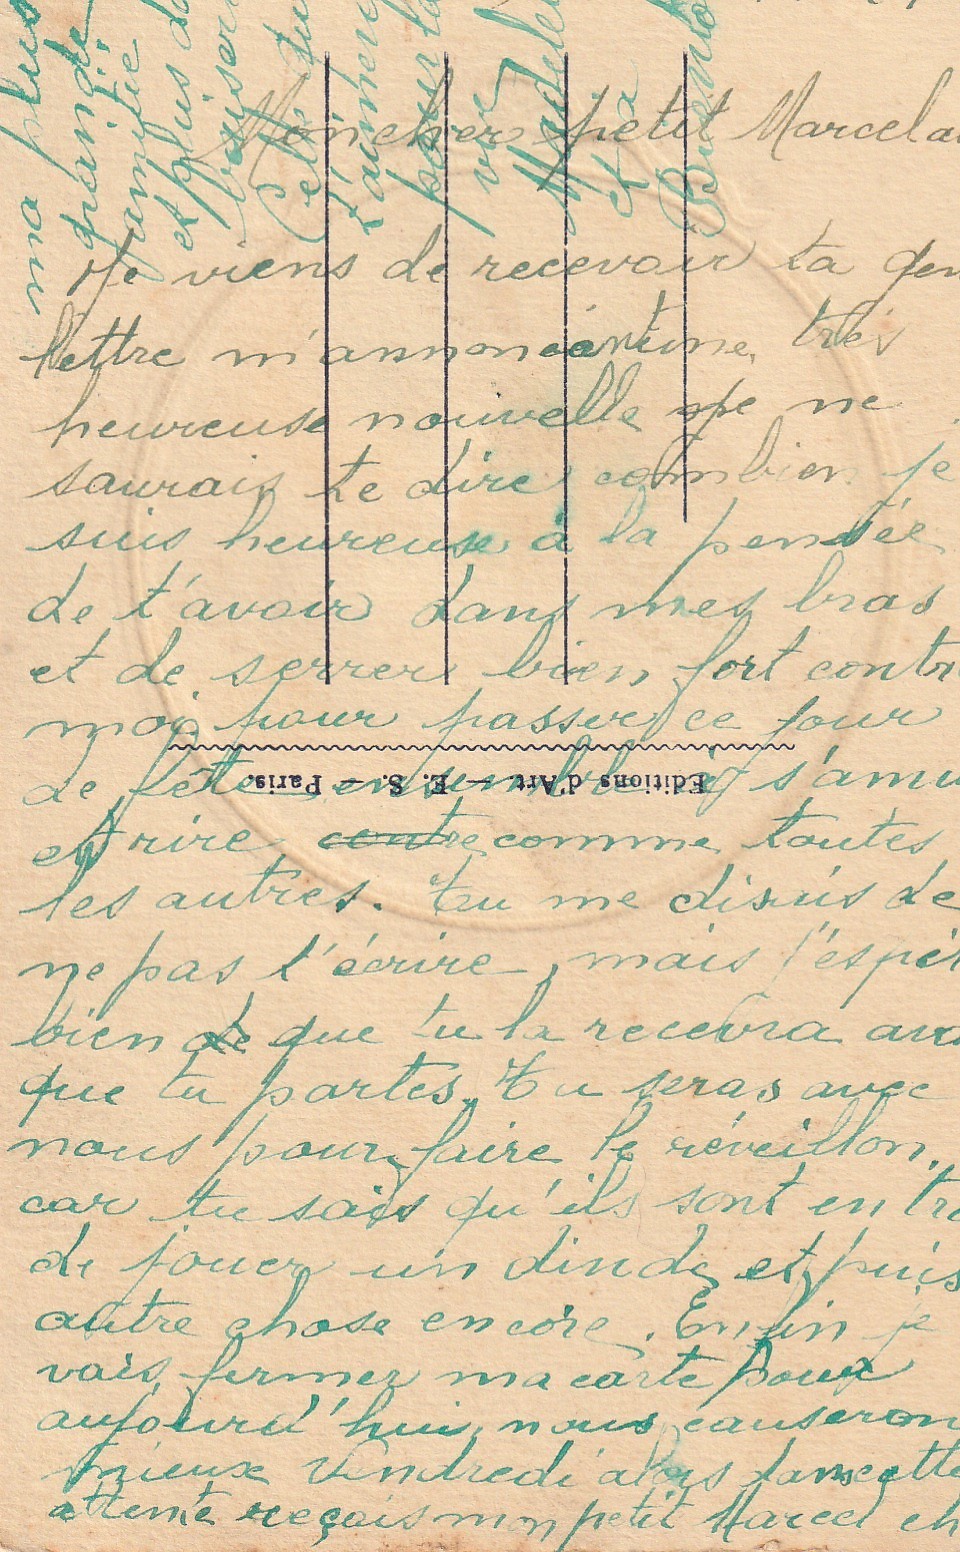 Mon cher petit Marcel
Je viens de recevoir ta
lettre m'annonçant une très
heureuse nouvelle je ne
saurais te dire combien je
suis heureuse à la pensée
de t'avoir dans mes bras
et de serrer bien fort contr
moi pour passer ce jour
de fête ensemble s'amu
et rire contre comme toutes
les autres. Tu me disais de
ne pas t'écrire, mais j'espèr
bien de que tu la recevra ava
que tu partes. Tu seras avec
nous pour faire le réveillon,
car tu sais qu'ils sont en tra
de jouer un dinde et puis
autre chose encore. Enfin je
vais fermer ma carte pour
aujourd'hui nous causeron
mieux Vendredi alors dans cette
attente reçois mon petit Marcel ch
ma plus
grande
amitié
et plus de
baisers
Celle
t'aimera
pour la
vie
Madelei
et ta
Editions d'Art. — E. S. — Paris.